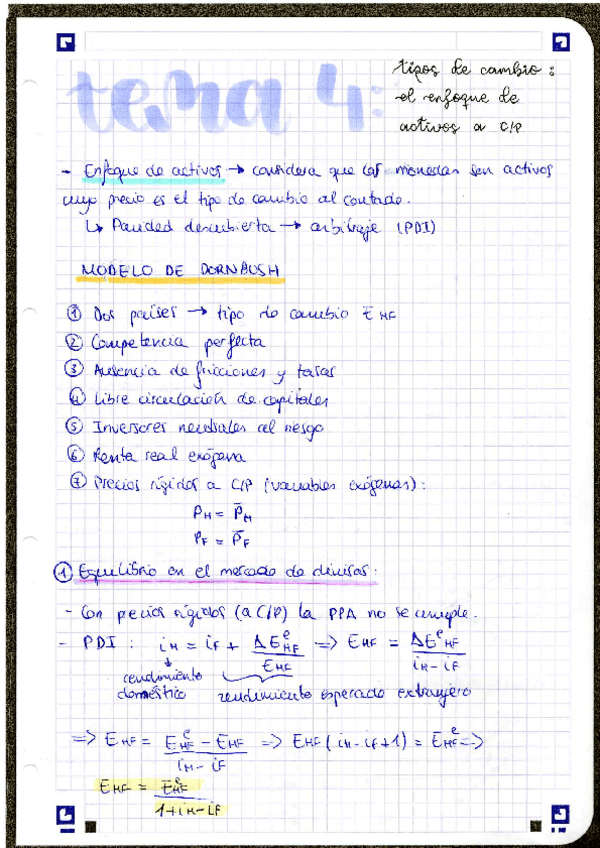 tema 4:
tipos de cambio:
el enfoque de
activos a C/P
- Enfoque de activos → considera que las monedas son activos
cuyo precio es el tipo de cambio al contado.
↳ Paridad descubierta → arbitraje (PDI)
MODELO DE DORNBUSH
① Dos países → tipo de cambio E HF
② Competencia perfecta
③ Ausencia de fricciones y tasas
④ Libre circulación de capitales
⑤ Inversores neutrales al riesgo
⑥ Renta real exógena
⑦ Precios rígidos a C/P (variables exógenas):
P_H = P̄_H
P_F = P̄_F
① Equilibrio en el mercado de divisas:
- Con precios rígidos (a C/P) la PPA no se cumple.
- PDI : i_H = i_F + ΔE^e_HF / E_HF => E_HF = ΔE^e_HF / i_H - i_F
rendimiento doméstico
rendimiento esperado extranjero
=> E_HF = E^e_HF - E_HF / i_H - i_F => E_HF (i_H - i_F + 1) = E^e_HF =>
E_HF = E^e_HF / 1 + i_H - i_F